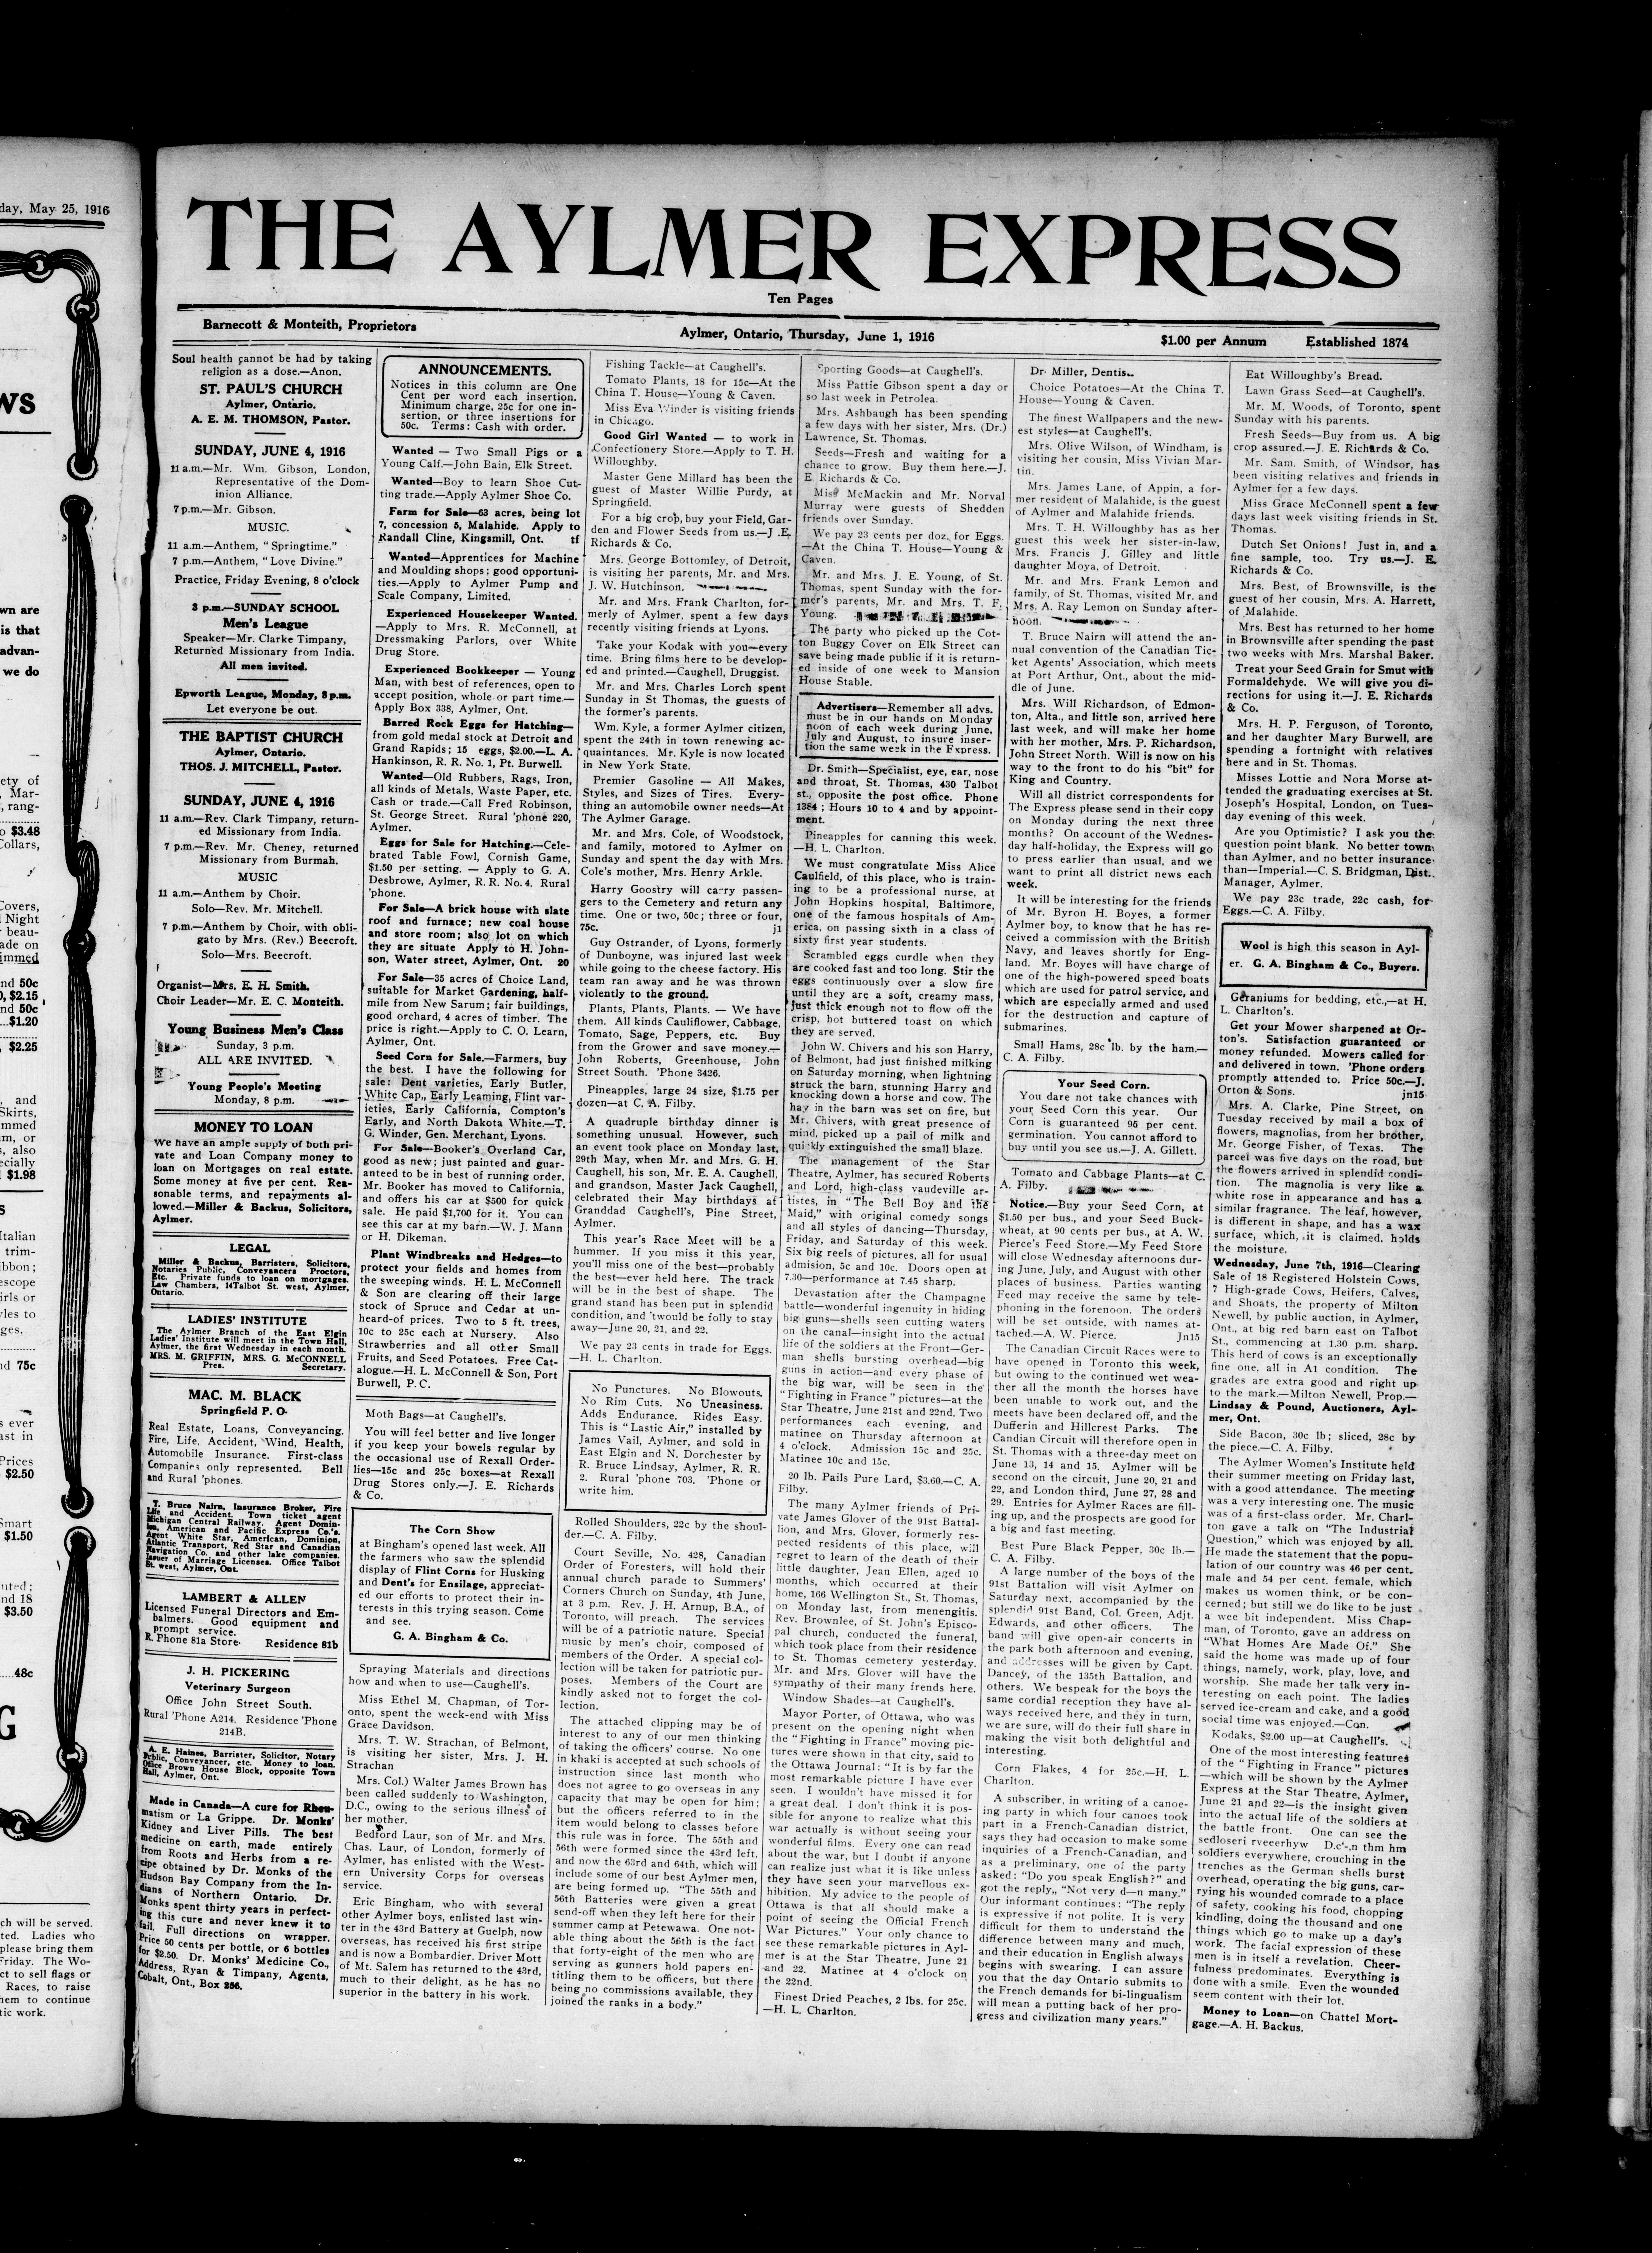 day, May 25, 1916
THE AYLMER EXPRESS
Ten Pages
Barnecott & Monteith, Proprietors
Aylmer, Ontario, Thursday, June 1, 1916
$1.00 per Annum
Established 1874
Soul health cannot be had by taking
religion as a dose.—Anon.
ST. PAUL'S CHURCH
Aylmer, Ontario.
A. E. M. THOMSON, Pastor.
SUNDAY, JUNE 4, 1916
11 a.m.—Mr. Wm. Gibson, London,
Representative of the Dom-
inion Alliance.
7 p.m.—Mr. Gibson.
MUSIC.
11 a.m.—Anthem, "Springtime."
7 p.m.—Anthem, "Love Divine."
Practice, Friday Evening, 8 o'clock
3 p.m.—SUNDAY SCHOOL
Men's League
Speaker—Mr. Clarke Timpany,
Returned Missionary from India.
All men invited.
Epworth League, Monday, 8 p.m.
Let everyone be out.
THE BAPTIST CHURCH
Aylmer, Ontario.
THOS. J. MITCHELL, Pastor.
SUNDAY, JUNE 4, 1916
11 a.m.—Rev. Clark Timpany, return-
ed Missionary from India.
7 p.m.—Rev. Mr. Cheney, returned
Missionary from Burmah.
MUSIC
11 a.m.—Anthem by Choir.
Solo—Rev. Mr. Mitchell.
7 p.m.—Anthem by Choir, with obli-
gato by Mrs. (Rev.) Beecroft.
Solo—Mrs. Beecroft.
Organist—Mrs. E. H. Smith.
Choir Leader—Mr. E. C. Monteith.
Young Business Men's Class
Sunday, 3 p.m.
ALL ARE INVITED.
Young People's Meeting
Monday, 8 p.m.
MONEY TO LOAN
We have an ample supply of both pri-
vate and Loan Company money to
loan on Mortgages on real estate.
Some money at five per cent. Rea-
sonable terms, and repayments al-
lowed.—Miller & Backus, Solicitors,
Aylmer.
LEGAL
Miller & Backus, Barristers, Solicitors,
Notaries Public, Conveyancers Proctors,
Etc. Private funds to loan on mortgages.
Law Chambers, 14Talbot St. west, Aylmer,
Ontario.
LADIES' INSTITUTE
The Aylmer Branch of the East Elgin
Ladies' Institute will meet in the Town Hall,
Aylmer, the first Wednesday in each month.
MRS. M. GRIFFIN, MRS. G. McCONNELL
Pres. Secretary.
MAC. M. BLACK
Springfield P. O.
Real Estate, Loans, Conveyancing.
Fire, Life, Accident, Wind, Health,
Automobile Insurance. First-class
Companies only represented. Bell
and Rural 'phones.
T. Bruce Nairn, Insurance Broker, Fire
Life and Accident. Town ticket agent
Michigan Central Railway. Agent Domin-
ion, American and Pacific Express Co.'s.
Agent White Star, American, Dominion,
Atlantic Transport, Red Star and Canadian
Navigation Co. and other lake companies.
Issuer of Marriage Licenses. Office Talbot
St. west, Aylmer, Ont.
LAMBERT & ALLEN
Licensed Funeral Directors and Em-
balmers. Good equipment and
prompt service.
R. Phone 81a Store. Residence 81b
J. H. PICKERING
Veterinary Surgeon
Office John Street South.
Rural 'Phone A214. Residence 'Phone
214B.
A. E. Haines, Barrister, Solicitor, Notary
Public, Conveyancer, etc. Money to loan.
Office Brown House Block, opposite Town
Hall, Aylmer, Ont.
Made in Canada—A cure for Rheu-
matism or La Grippe. Dr. Monks'
Kidney and Liver Pills. The best
medicine on earth, made entirely
from Roots and Herbs from a re-
cipe obtained by Dr. Monks of the
Hudson Bay Company from the In-
dians of Northern Ontario. Dr.
Monks spent thirty years in perfect-
ing this cure and never knew it to
fail. Full directions on wrapper.
Price 50 cents per bottle, or 6 bottles
for $2.50. Dr. Monks' Medicine Co.,
Address, Ryan & Timpany, Agents,
Cobalt, Ont., Box 256.
ANNOUNCEMENTS.
Notices in this column are One
Cent per word each insertion.
Minimum charge, 25c for one in-
sertion, or three insertions for
50c. Terms: Cash with order.
Wanted — Two Small Pigs or a
Young Calf.—John Bain, Elk Street.
Wanted—Boy to learn Shoe Cut-
ting trade.—Apply Aylmer Shoe Co.
Farm for Sale—63 acres, being lot
7, concession 5, Malahide. Apply to
Randall Cline, Kingsmill, Ont. tf
Wanted—Apprentices for Machine
and Moulding shops; good opportuni-
ties.—Apply to Aylmer Pump and
Scale Company, Limited.
Experienced Housekeeper Wanted.
—Apply to Mrs. R. McConnell, at
Dressmaking Parlors, over White
Drug Store.
Experienced Bookkeeper — Young
Man, with best of references, open to
accept position, whole or part time.—
Apply Box 338, Aylmer, Ont.
Barred Rock Eggs for Hatching—
from gold medal stock at Detroit and
Grand Rapids; 15 eggs, $2.00.—L. A.
Hankinson, R. R. No. 1, Pt. Burwell.
Wanted—Old Rubbers, Rags, Iron,
all kinds of Metals, Waste Paper, etc.
Cash or trade.—Call Fred Robinson,
St. George Street. Rural 'phone 220,
Aylmer.
Eggs for Sale for Hatching.—Cele-
brated Table Fowl, Cornish Game,
$1.50 per setting. — Apply to G. A.
Desbrowe, Aylmer, R. R. No. 4. Rural
'phone.
For Sale—A brick house with slate
roof and furnace; new coal house
and store room; also lot on which
they are situate Apply to H. John-
son, Water street, Aylmer, Ont. 20
For Sale—35 acres of Choice Land,
suitable for Market Gardening, half-
mile from New Sarum; fair buildings,
good orchard, 4 acres of timber. The
price is right.—Apply to C. O. Learn,
Aylmer, Ont.
Seed Corn for Sale.—Farmers, buy
the best. I have the following for
sale: Dent varieties, Early Butler,
White Cap,, Early Leaming, Flint var-
ieties, Early California, Compton's
Early, and North Dakota White.—T.
G. Winder, Gen. Merchant, Lyons.
For Sale—Booker's Overland Car,
good as new; just painted and guar-
anteed to be in best of running order.
Mr. Booker has moved to California,
and offers his car at $500 for quick
sale. He paid $1,700 for it. You can
see this car at my barn.—W. J. Mann
or H. Dikeman.
Plant Windbreaks and Hedges—to
protect your fields and homes from
the sweeping winds. H. L. McConnell
& Son are clearing off their large
stock of Spruce and Cedar at un-
heard-of prices. Two to 5 ft. trees,
10c to 25c each at Nursery. Also
Strawberries and all other Small
Fruits, and Seed Potatoes. Free Cat-
alogue.—H. L. McConnell & Son, Port
Burwell, P. C.
Moth Bags—at Caughell's.
You will feel better and live longer
if you keep your bowels regular by
the occasional use of Rexall Order-
lies—15c and 25c boxes—at Rexall
Drug Stores only.—J. E. Richards
& Co.
The Corn Show
at Bingham's opened last week. All
the farmers who saw the splendid
display of Flint Corns for Husking
and Dent's for Ensilage, appreciat-
ed our efforts to protect their in-
terests in this trying season. Come
and see.
G. A. Bingham & Co.
Spraying Materials and directions
how and when to use—Caughell's.
Miss Ethel M. Chapman, of Tor-
onto, spent the week-end with Miss
Grace Davidson.
Mrs. T. W. Strachan, of Belmont,
is visiting her sister, Mrs. J. H.
Strachan
Mrs. Col.) Walter James Brown has
been called suddenly to Washington,
D.C., owing to the serious illness of
her mother.
Bedford Laur, son of Mr. and Mrs.
Chas. Laur, of London, formerly of
Aylmer, has enlisted with the West-
ern University Corps for overseas
service.
Eric Bingham, who with several
other Aylmer boys, enlisted last win-
ter in the 43rd Battery at Guelph, now
overseas, has received his first stripe
and is now a Bombardier. Driver Mott
of Mt. Salem has returned to the 43rd,
much to their delight, as he has no
superior in the battery in his work.
Fishing Tackle—at Caughell's.
Tomato Plants, 18 for 15c—At the
China T. House—Young & Caven.
Miss Eva Winder is visiting friends
in Chicago.
Good Girl Wanted — to work in
Confectionery Store.—Apply to T. H.
Willoughby.
Master Gene Millard has been the
guest of Master Willie Purdy, at
Springfield.
For a big crop, buy your Field, Gar-
den and Flower Seeds from us.—J .E.
Richards & Co.
Mrs. George Bottomley, of Detroit,
is visiting her parents, Mr. and Mrs.
J. W. Hutchinson.
Mr. and Mrs. Frank Charlton, for-
merly of Aylmer, spent a few days
recently visiting friends at Lyons.
Take your Kodak with you—every
time. Bring films here to be develop-
ed and printed.—Caughell, Druggist.
Mr. and Mrs. Charles Lorch spent
Sunday in St Thomas, the guests of
the former's parents.
Wm. Kyle, a former Aylmer citizen,
spent the 24th in town renewing ac-
quaintances. Mr. Kyle is now located
in New York State.
Premier Gasoline — All Makes,
Styles, and Sizes of Tires. Every-
thing an automobile owner needs—At
The Aylmer Garage.
Mr. and Mrs. Cole, of Woodstock,
and family, motored to Aylmer on
Sunday and spent the day with Mrs.
Cole's mother, Mrs. Henry Arkle.
Harry Goostry will carry passen-
gers to the Cemetery and return any
time. One or two, 50c; three or four,
75c. j1
Guy Ostrander, of Lyons, formerly
of Dunboyne, was injured last week
while going to the cheese factory. His
team ran away and he was thrown
violently to the ground.
Plants, Plants, Plants. — We have
them. All kinds Cauliflower, Cabbage,
Tomato, Sage, Peppers, etc. Buy
from the Grower and save money.—
John Roberts, Greenhouse, John
Street South. 'Phone 3426.
Pineapples, large 24 size, $1.75 per
dozen—at C. A. Filby.
A quadruple birthday dinner is
something unusual. However, such
an event took place on Monday last,
29th May, when Mr. and Mrs. G. H.
Caughell, his son, Mr. E. A. Caughell,
and grandson, Master Jack Caughell,
celebrated their May birthdays at
Granddad Caughell's, Pine Street,
Aylmer.
This year's Race Meet will be a
hummer. If you miss it this year,
you'll miss one of the best—probably
the best—ever held here. The track
will be in the best of shape. The
grand stand has been put in splendid
condition, and 'twould be folly to stay
away—June 20, 21, and 22.
We pay 23 cents in trade for Eggs.
—H. L. Charlton.
No Punctures. No Blowouts.
No Rim Cuts. No Uneasiness.
Adds Endurance. Rides Easy.
This is "Lastic Air," installed by
James Vail, Aylmer, and sold in
East Elgin and N. Dorchester by
R. Bruce Lindsay, Aylmer, R. R.
2. Rural 'phone 703. 'Phone or
write him.
Rolled Shoulders, 22c by the shoul-
der.—C. A. Filby.
Court Seville, No. 428, Canadian
Order of Foresters, will hold their
annual church parade to Summers'
Corners Church on Sunday, 4th June,
at 3 p.m. Rev. J. H. Arnup, B.A., of
Toronto, will preach. The services
will be of a patriotic nature. Special
music by men's choir, composed of
members of the Order. A special col-
lection will be taken for patriotic pur-
poses. Members of the Court are
kindly asked not to forget the col-
lection.
The attached clipping may be of
interest to any of our men thinking
of taking the officers' course. No one
in khaki is accepted at such schools of
instruction since last month who
does not agree to go overseas in any
capacity that may be open for him;
but the officers referred to in the
item would belong to classes before
this rule was in force. The 55th and
56th were formed since the 43rd left,
and now the 63rd and 64th, which will
include some of our best Aylmer men,
are being formed up. "The 55th and
56th Batteries were given a great
send-off when they left here for their
summer camp at Petewawa. One not-
able thing about the 56th is the fact
that forty-eight of the men who are
serving as gunners hold papers en-
titling them to be officers, but there
being no commissions available, they
joined the ranks in a body."
Sporting Goods—at Caughell's.
Miss Pattie Gibson spent a day or
so last week in Petrolea.
Mrs. Ashbaugh has been spending
a few days with her sister, Mrs. (Dr.)
Lawrence, St. Thomas.
Seeds—Fresh and waiting for a
chance to grow. Buy them here.—J.
E. Richards & Co.
Miss McMackin and Mr. Norval
Murray were guests of Shedden
friends over Sunday.
We pay 23 cents per doz. for Eggs.
—At the China T. House—Young &
Caven.
Mr. and Mrs. J. E. Young, of St.
Thomas, spent Sunday with the for-
mer's parents, Mr. and Mrs. T. F.
Young.
The party who picked up the Cot-
ton Buggy Cover on Elk Street can
save being made public if it is return-
ed inside of one week to Mansion
House Stable.
Advertisers—Remember all advs.
must be in our hands on Monday
noon of each week during June,
July and August, to insure inser-
tion the same week in the Express.
Dr. Smith—Specialist, eye, ear, nose
and throat, St. Thomas, 430 Talbot
st., opposite the post office. Phone
1384 ; Hours 10 to 4 and by appoint-
ment.
Pineapples for canning this week.
—H. L. Charlton.
We must congratulate Miss Alice
Caulfield, of this place, who is train-
ing to be a professional nurse, at
John Hopkins hospital, Baltimore,
one of the famous hospitals of Am-
erica, on passing sixth in a class of
sixty first year students.
Scrambled eggs curdle when they
are cooked fast and too long. Stir the
eggs continuously over a slow fire
until they are a soft, creamy mass,
just thick enough not to flow off the
crisp, hot buttered toast on which
they are served.
John W. Chivers and his son Harry,
of Belmont, had just finished milking
on Saturday morning, when lightning
struck the barn, stunning Harry and
knocking down a horse and cow. The
hay in the barn was set on fire, but
Mr. Chivers, with great presence of
mind, picked up a pail of milk and
quickly extinguished the small blaze.
The management of the Star
Theatre, Aylmer, has secured Roberts
and Lord, high-class vaudeville ar-
tistes, in "The Bell Boy and the
Maid," with original comedy songs
and all styles of dancing—Thursday,
Friday, and Saturday of this week.
Six big reels of pictures, all for usual
admission, 5c and 10c. Doors open at
7.30—performance at 7.45 sharp.
Devastation after the Champagne
battle—wonderful ingenuity in hiding
big guns—shells seen cutting waters
on the canal—insight into the actual
life of the soldiers at the Front—Ger-
man shells bursting overhead—big
guns in action—and every phase of
the big war, will be seen in the
"Fighting in France" pictures—at the
Star Theatre, June 21st and 22nd. Two
performances each evening, and
matinee on Thursday afternoon at
4 o'clock. Admission 15c and 25c.
Matinee 10c and 15c.
20 lb. Pails Pure Lard, $3.60.—C. A.
Filby.
The many Aylmer friends of Pri-
vate James Glover of the 91st Battal-
lion, and Mrs. Glover, formerly res-
pected residents of this place, will
regret to learn of the death of their
little daughter, Jean Ellen, aged 10
months, which occurred at their
home, 166 Wellington St., St. Thomas,
on Monday last, from menengitis.
Rev. Brownlee, of St. John's Episco-
pal church, conducted the funeral,
which took place from their residence
to St. Thomas cemetery yesterday.
Mr. and Mrs. Glover will have the
sympathy of their many frends here.
Window Shades—at Caughell's.
Mayor Porter, of Ottawa, who was
present on the opening night when
the "Fighting in France" moving pic-
tures were shown in that city, said to
the Ottawa Journal: "It is by far the
most remarkable picture I have ever
seen. I wouldn't have missed it for
a great deal. I don't think it is pos-
sible for anyone to realize what this
war actually is without seeing your
wonderful films. Every one can read
about the war, but I doubt if anyone
can realize just what it is like unless
they have seen your marvellous ex-
hibition. My advice to the people of
Ottawa is that all should make a
point of seeing the Official French
War Pictures." Your only chance to
see these remarkable pictures in Ayl-
mer is at the Star Theatre, June 21
and 22. Matinee at 4 o'clock on
the 22nd.
Finest Dried Peaches, 2 lbs. for 25c.
—H. L. Charlton.
Dr. Miller, Dentis
Choice Potatoes—At the China T.
House—Young & Caven.
The finest Wallpapers and the new-
est styles—at Caughell's.
Mrs. Olive Wilson, of Windham, is
visiting her cousin, Miss Vivian Mar-
tin.
Mrs. James Lane, of Appin, a for-
mer resident of Malahide, is the guest
of Aylmer and Malahide friends.
Mrs. T. H. Willoughby has as her
guest this week her sister-in-law,
Mrs. Francis J. Gilley and little
daughter Moya, of Detroit.
Mr. and Mrs. Frank Lemon and
family, of St. Thomas, visited Mr. and
Mrs. A. Ray Lemon on Sunday after-
noon.
T. Bruce Nairn will attend the an-
nual convention of the Canadian Tic-
ket Agents' Association, which meets
at Port Arthur, Ont., about the mid-
dle of June.
Mrs. Will Richardson, of Edmon-
ton, Alta., and little son, arrived here
last week, and will make her home
with her mother, Mrs. P. Richardson,
John Street North. Will is now on his
way to the front to do his "bit" for
King and Country.
Will all district correspondents for
The Express please send in their copy
on Monday during the next three
months? On account of the Wednes-
day half-holiday, the Express will go
to press earlier than usual, and we
want to print all district news each
week.
It will be interesting for the friends
of Mr. Byron H. Boyes, a former
Aylmer boy, to know that he has re-
ceived a commission with the British
Navy, and leaves shortly for Eng-
land. Mr. Boyes will have charge of
one of the high-powered speed boats
which are used for patrol service, and
which are especially armed and used
for the destruction and capture of
submarines.
Small Hams, 28c lb. by the ham.—
C. A. Filby.
Your Seed Corn.
You dare not take chances with
your Seed Corn this year. Our
Corn is guaranteed 95 per cent.
germination. You cannot afford to
buy until you see us.—J. A. Gillett.
Tomato and Cabbage Plants—at C.
A. Filby.
Notice.—Buy your Seed Corn, at
$1.50 per bus., and your Seed Buck-
wheat, at 90 cents per bus., at A. W.
Pierce's Feed Store.—My Feed Store
will close Wednesday afternoons dur-
ing June, July, and August with other
places of business. Parties wanting
Feed may receive the same by tele-
phoning in the forenoon. The orders
will be set outside, with names at-
tached.—A. W. Pierce. Jn15
The Canadian Circuit Races were to
have opened in Toronto this week,
but owing to the continued wet wea-
ther all the month the horses have
been unable to work out, and the
meets have been declared off, and the
Dufferin and Hillcrest Parks. The
Candian Circuit will therefore open in
St. Thomas with a three-day meet on
June 13, 14 and 15. Aylmer will be
second on the circuit, June 20, 21 and
22, and London third, June 27, 28 and
29. Entries for Aylmer Races are fill-
ing up, and the prospects are good for
a big and fast meeting.
Best Pure Black Pepper, 30c lb.—
C. A. Filby.
A large number of the boys of the
91st Battalion will visit Aylmer on
Saturday next, accompanied by the
splendid 91st Band, Col. Green, Adjt.
Edwards, and other officers. The
band will give open-air concerts in
the park both afternoon and evening,
and addresses will be given by Capt.
Dancey, of the 135th Battalion, and
others. We bespeak for the boys the
same cordial reception they have al-
ways received here, and they in turn,
we are sure, will do their full share in
making the visit both delightful and
interesting.
Corn Flakes, 4 for 25c.—H. L.
Charlton.
A subscriber, in writing of a canoe-
ing party in which four canoes took
part in a French-Canadian district,
says they had occasion to make some
inquiries of a French-Canadian, and
as a preliminary, one of the party
asked: "Do you speak English?" and
got the reply,, "Not very d—n many."
Our informant continues: "The reply
is expressive if not polite. It is very
difficult for them to understand the
difference between many and much,
and their education in English always
begins with swearing. I can assure
you that the day Ontario submits to
the French demands for bi-lingualism
will mean a putting back of her pro-
gress and civilization many years."
Eat Willoughby's Bread.
Lawn Grass Seed—at Caughell's.
Mr. M. Woods, of Toronto, spent
Sunday with his parents.
Fresh Seeds—Buy from us. A big
crop assured.—J. E. Richards & Co.
Mr. Sam. Smith, of Windsor, has
been visiting relatives and friends in
Aylmer for a few days.
Miss Grace McConnell spent a few
days last week visiting friends in St.
Thomas.
Dutch Set Onions! Just in, and a
fine sample, too. Try us.—J. E.
Richards & Co.
Mrs. Best, of Brownsville, is the
guest of her cousin, Mrs. A. Harrett,
of Malahide.
Mrs. Best has returned to her home
in Brownsville after spending the past
two weeks with Mrs. Marshal Baker.
Treat your Seed Grain for Smut with
Formaldehyde. We will give you di-
rections for using it.—J. E. Richards
& Co.
Mrs. H. P. Ferguson, of Toronto,
and her daughter Mary Burwell, are
spending a fortnight with relatives
here and in St. Thomas.
Misses Lottie and Nora Morse at-
tended the graduating exercises at St.
Joseph's Hospital, London, on Tues-
day evening of this week.
Are you Optimistic? I ask you the
question point blank. No better town
than Aylmer, and no better insurance
than—Imperial.—C. S. Bridgman, Dist.
Manager, Aylmer.
We pay 23c trade, 22c cash, for
Eggs.—C. A. Filby.
Wool is high this season in Ayl-
er. G. A. Bingham & Co., Buyers.
Geraniums for bedding, etc.,—at H.
L. Charlton's.
Get your Mower sharpened at Or-
ton's. Satisfaction guaranteed or
money refunded. Mowers called for
and delivered in town. 'Phone orders
promptly attended to. Price 50c.—J.
Orton & Sons. jn15
Mrs. A. Clarke, Pine Street, on
Tuesday received by mail a box of
flowers, magnolias, from her brother,
Mr. George Fisher, of Texas. The
parcel was five days on the road, but
the flowers arrived in splendid condi-
tion. The magnolia is very like a
white rose in appearance and has a
similar fragrance. The leaf, however,
is different in shape, and has a wax
surface, which, it is claimed, holds
the moisture.
Wednesday, June 7th, 1916—Clearing
Sale of 18 Registered Holstein Cows,
7 High-grade Cows, Heifers, Calves,
and Shoats, the property of Milton
Newell, by public auction, in Aylmer,
Ont., at big red barn east on Talbot
St., commencing at 1.30 p.m. sharp.
This herd of cows is an exceptionally
fine one, all in A1 condition. The
grades are extra good and right up
to the mark.—Milton Newell, Prop.—
Lindsay & Pound, Auctioners, Ayl-
mer, Ont.
Side Bacon, 30c lb; sliced, 28c by
the piece.—C. A. Filby.
The Aylmer Women's Institute held
their summer meeting on Friday last,
with a good attendance. The meeting
was a very interesting one. The music
was of a first-class order. Mr. Charl-
ton gave a talk on "The Industrial
Question," which was enjoyed by all.
He made the statement that the popu-
lation of our country was 46 per cent.
male and 54 per cent. female, which
makes us women think, or be con-
cerned; but still we do like to be just
a wee bit independent. Miss Chap-
man, of Toronto, gave an address on
"What Homes Are Made Of." She
said the home was made up of four
things, namely, work, play, love, and
worship. She made her talk very in-
teresting on each point. The ladies
served ice-cream and cake, and a good
social time was enjoyed.—Con.
Kodaks, $2.00 up—at Caughell's.
One of the most interesting features
of the "Fighting in France" pictures
—which will be shown by the Aylmer
Express at the Star Theatre, Aylmer,
June 21 and 22—is the insight given
into the actual life of the soldiers at
the battle front. One can see the
sedloseri rveeerhyw D.c'-,n thm hm
soldiers everywhere, crouching in the
trenches as the German shells burst
overhead, operating the big guns, car-
rying his wounded comrade to a place
of safety, cooking his food, chopping
kindling, doing the thousand and one
things which go to make up a day's
work. The facial expression of these
men is in itself a revelation. Cheer-
fulness predominates. Everything is
done with a smile. Even the wounded
seem content with their lot.
Money to Loan—on Chattel Mort-
gage.—A. H. Backus.